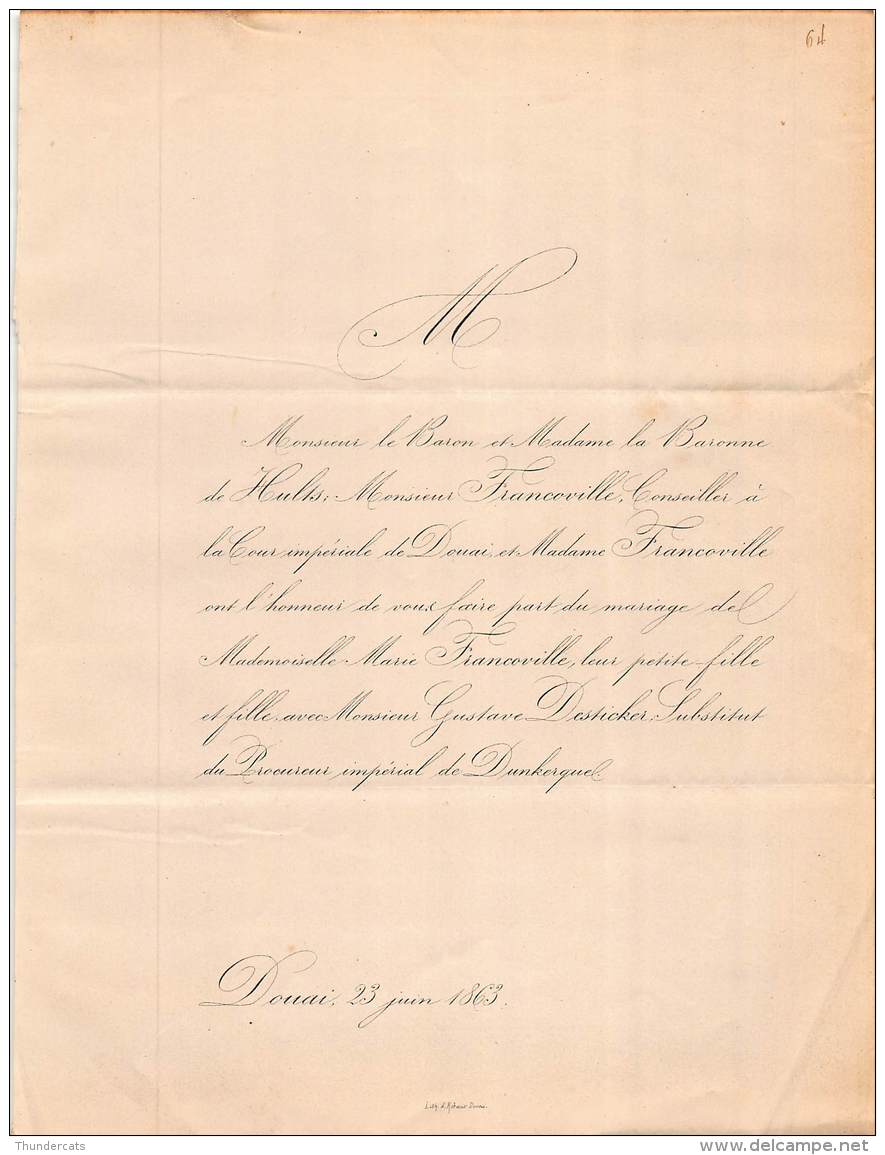 64
M
Monsieur le Baron et Madame la Baronne
de Hults; Monsieur Francoville, Conseiller à
la Cour impériale de Douai, et Madame Francoville
ont l'honneur de vous faire part du mariage de
Mademoiselle Marie Francoville, leur petite-fille
et fille, avec Monsieur Gustave Desticker, Substitut
du Procureur impérial de Dunkerque.
Douai, 23 juin 1863.
Lith. Douai.
Thundercats
delcampe.net